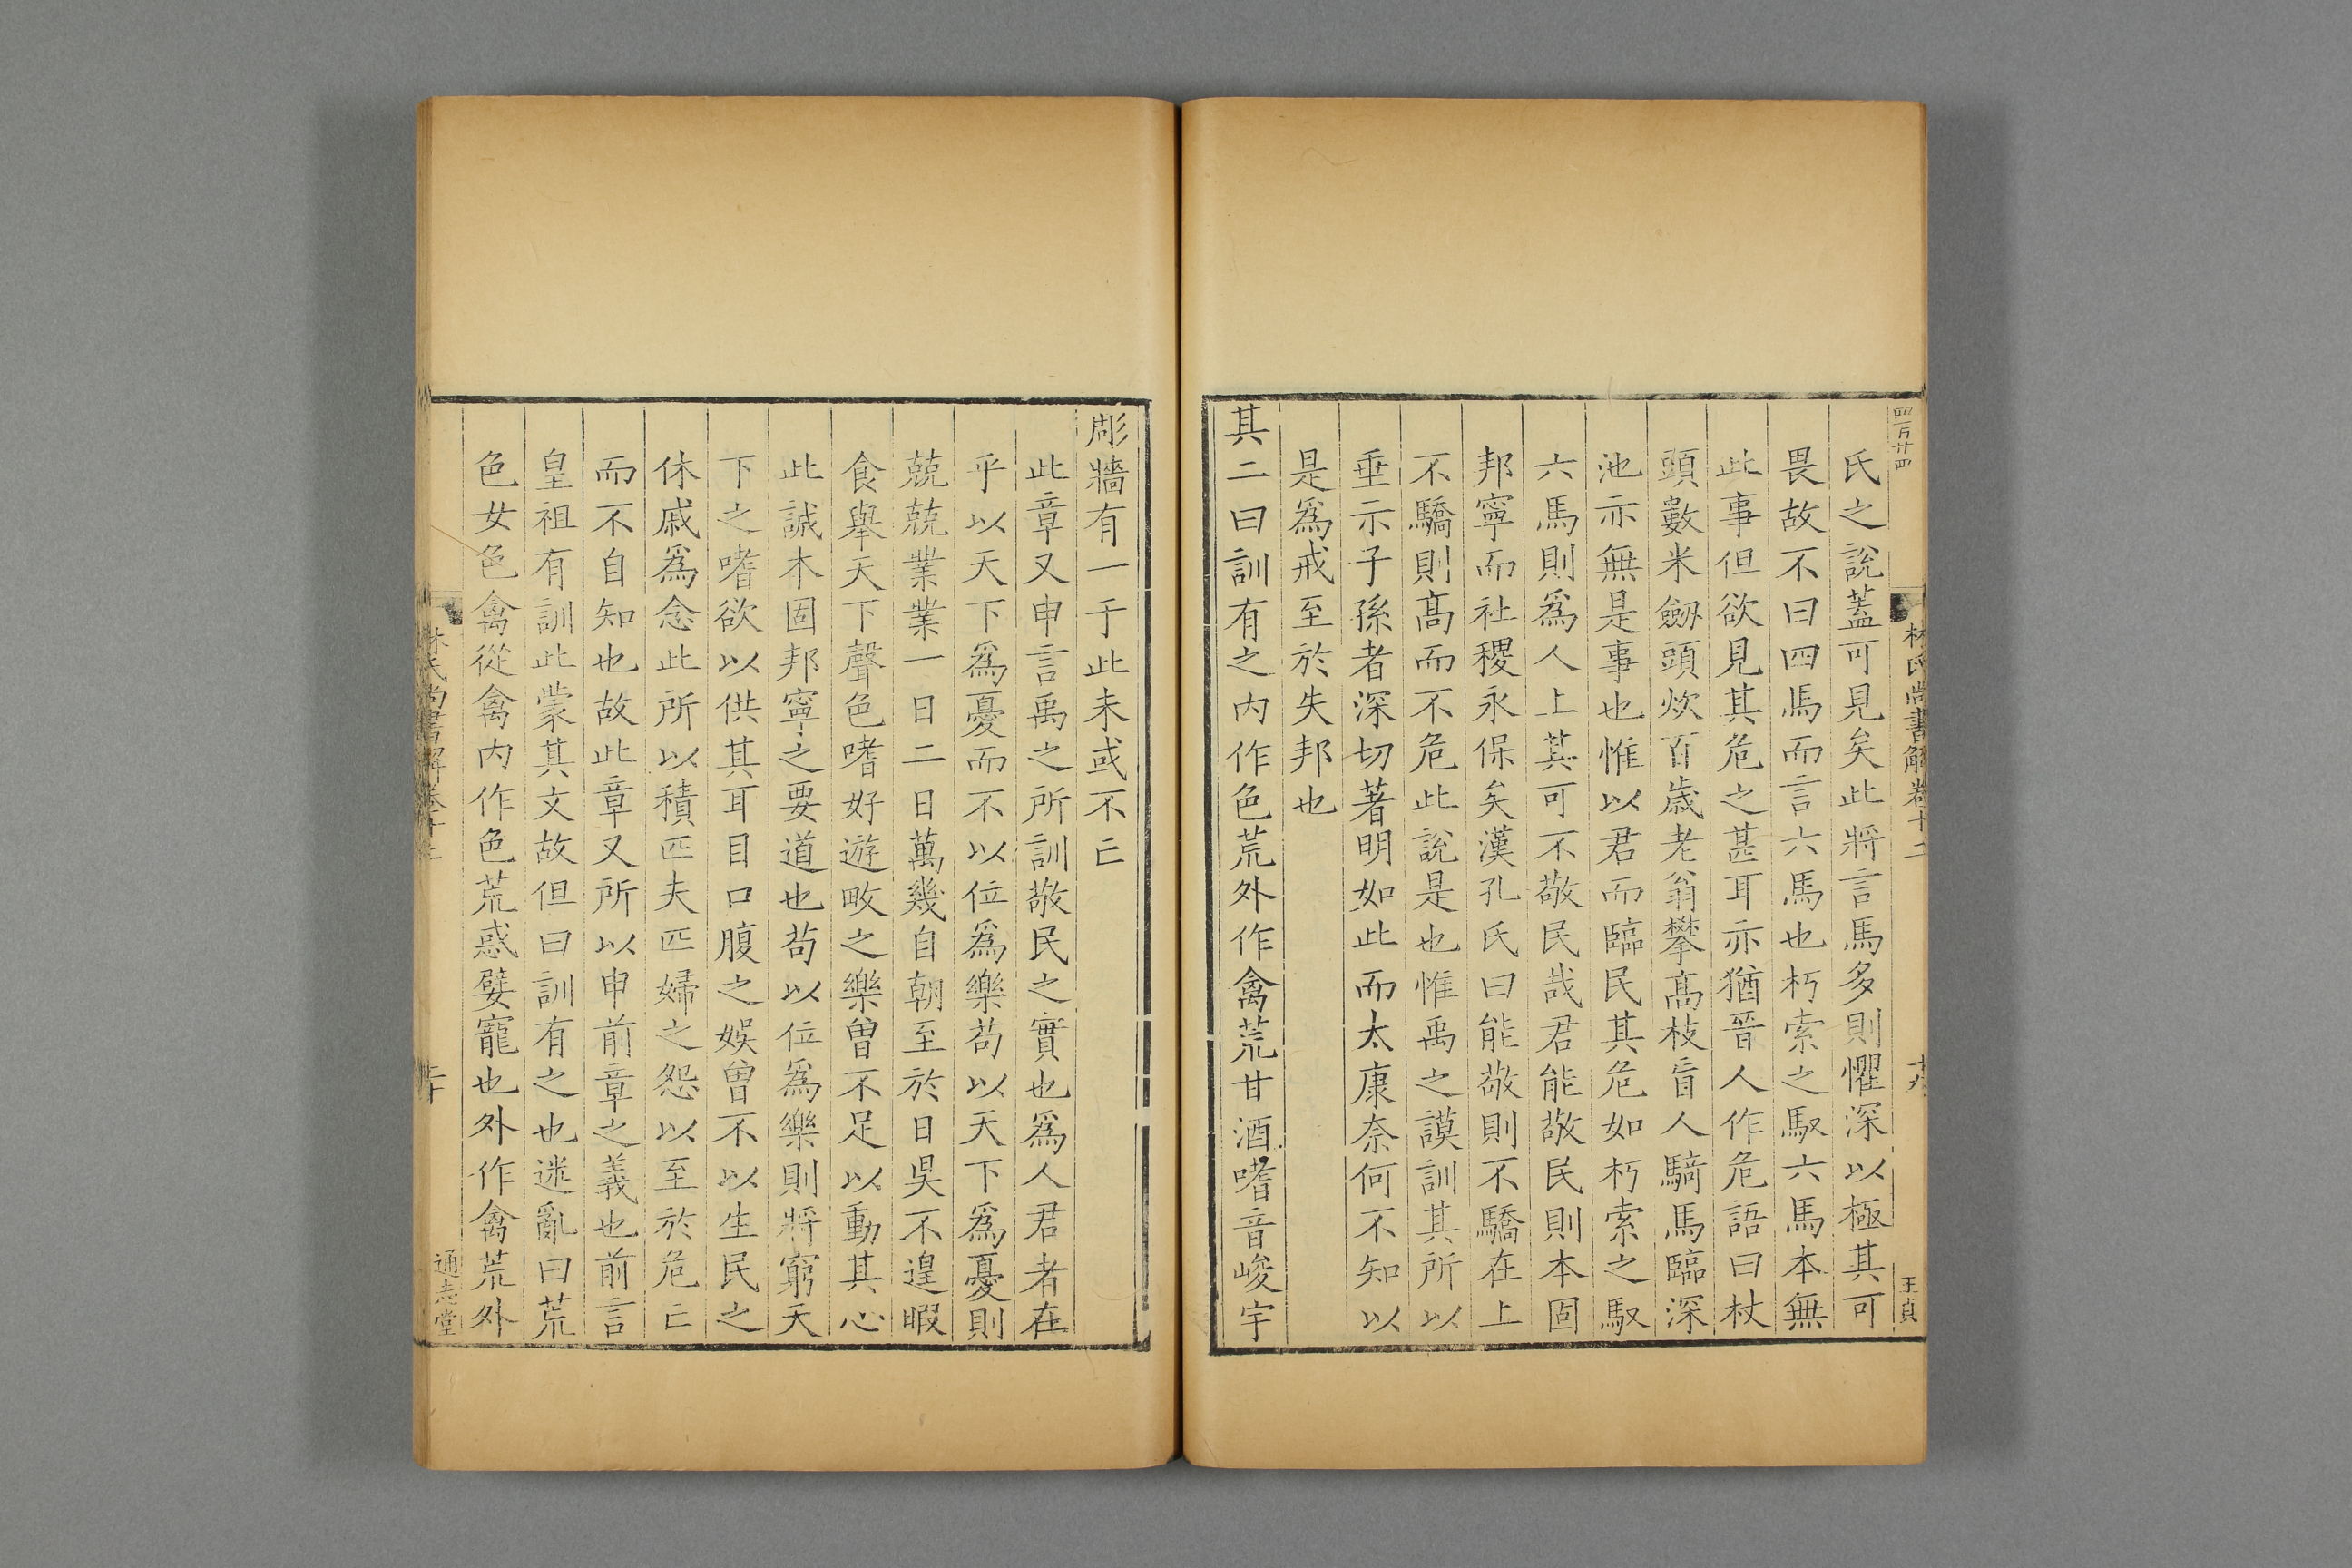 四百廿四
林氏尚書解卷十二
十九
王貞
氏之說蓋可見矣此將言馬多則懼深以極其可
畏故不曰四馬而言六馬也朽索之馭六馬本無
此事但欲見其危之甚耳亦猶晉人作危語曰杖
頭數米劒頭炊百歲老翁攀高枝盲人騎馬臨深
池亦無是事也惟以君而臨民其危如朽索之馭
六馬則爲人上其可不敬民哉君能敬民則本固
邦寧而社稷永保矣漢孔氏曰能敬則不驕在上
不驕則髙而不危此說是也惟禹之謨訓其所以
垂示子孫者深切著明如此而太康奈何不知以
是爲戒至於失邦也
其二曰訓有之内作色荒外作禽荒甘酒嗜音峻宇
彫牆有一于此未或不亡
此章又申言禹之所訓敬民之實也爲人君者在
乎以天下爲憂而不以位爲樂苟以天下爲憂則
兢兢業業一日二日萬幾自朝至於日昃不遑暇
食舉天下聲色嗜好遊畋之樂曾不足以動其心
此誠本固邦寧之要道也苟以位爲樂則將窮天
下之嗜欲以供其耳目口腹之娛曾不以生民之
休戚爲念此所以積匹夫匹婦之怨以至於危亡
而不自知也故此章又所以申前章之義也前言
皇祖有訓此蒙其文故但曰訓有之也迷亂曰荒
色女色禽從禽内作色荒惑嬖寵也外作禽荒外
林氏尚書解卷十二
二十
通志堂